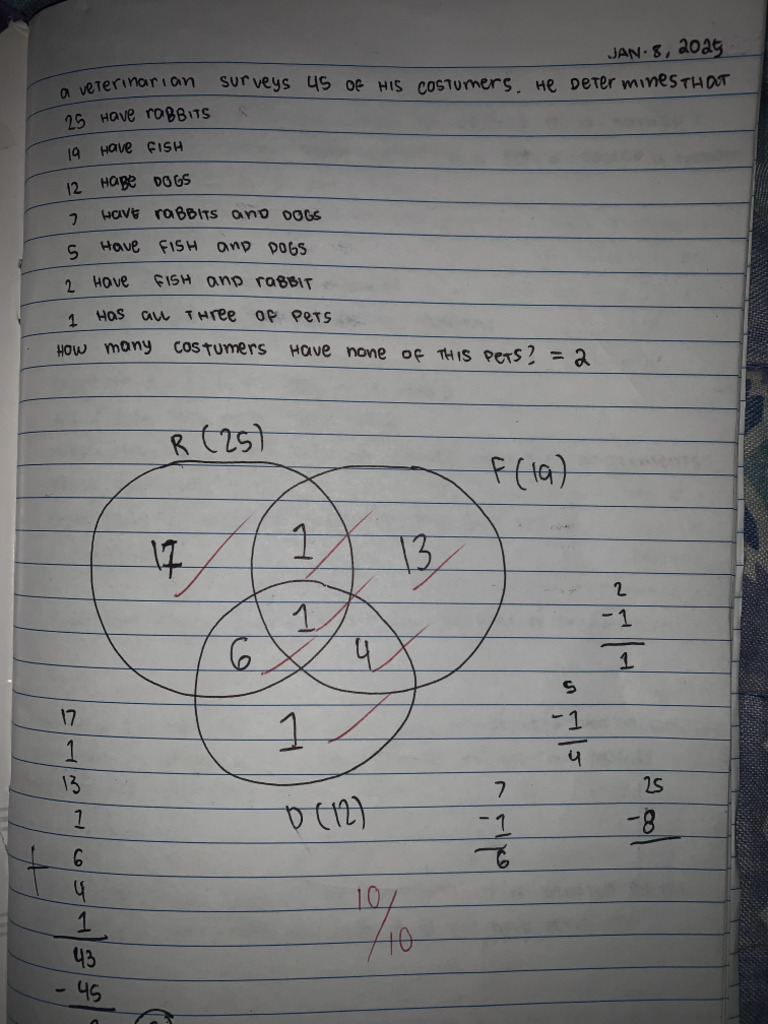 JAN. 8, 2025
a veterinarian surveys 45 of his costumers. He determines that
25 Have raBBITS
19 Have FISH
12 HaBe DOGS
7 Have raBBITS anD DOGS
5 Have FISH anD DOGS
2 Have FISH anD raBBIT
1 Has all THree OF PeTS
How many costumers Have none OF THIS PeTS? = 2
R (25)
F (19)
17
1
13
1
6
4
1
D (12)
2
-1
1
5
-1
4
7
-1
6
25
-8
17
1
13
1
+ 6
4
1
43
- 45
10/10